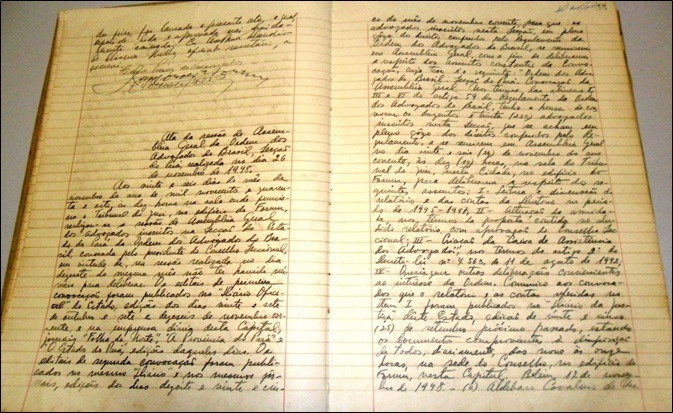 dou fins, foi lavrada a presente ata, a qual
depois de lida e aprovada vai devida-
mente assinada. Eu
secretário, a
escrevi.
Ata da sessão de Assem-
bléia Geral da Ordem dos
Advogados do Brasil, Secção
do Pará, realizada no dia 26
de novembro de 1948.
Aos vinte e seis dias do mês de
novembro do ano de mil novecentos e quaren-
ta e oito, às dez horas na sala onde funcio-
na o Tribunal do Juri, no edifício do Forum,
realizou-se a sessão de Assembléia Geral
dos advogados inscritos na Secção do Esta-
do do Pará da Ordem dos Advogados do Bra-
sil convocada pelo presidente do Conselho Seccional,
em virtude de na sessão realizada no dia
dezoito do mesmo mês não ter havido nú-
mero para deliberar. Os editais de primeira
convocação foram publicados no "Diário Ofi-
cial" do Estado, edição dos dias
de outubro e sete e dezoito de novembro cor-
rente e na imprensa diária desta Capital,
jornais "Folha do Norte", "A Província do Pará" e
"O Estado do Pará", edições daqueles dias. Os
editais de segunda convocação foram publi-
cados no mesmo "Diário" e nos mesmos jor-
nais, edições dos dias dezoito e vinte e cin-
co do mês de novembro corrente, para que os
advogados inscritos nesta Secção, em pleno
gôzo dos direitos conferidos pelo Regulamento da
Ordem dos Advogados do Brasil, se reunissem
em Assembléia Geral, com o fim de deliberar
a respeito dos assuntos constantes da Convoca-
ção, cujo teor é o seguinte: "Ordem dos Advo-
gados do Brasil. Secção do Pará. Convocação da
Assembléia Geral. Nos termos das alíneas
III e VI do artigo 59 do Regulamento da Ordem
dos Advogados do Brasil, tenho a honra de con-
vocar os duzentos e trinta advogados
inscritos nesta Secção, que se acham em
pleno gôzo dos direitos conferidos pelo Re-
gulamento, a se reunirem em Assembléia Geral
no dia vinte e seis (26) de novembro do ano
corrente, às dez (10) horas, na sala do Tribunal
do Juri, nesta Cidade, no edifício do
Forum, para deliberarem a respeito dos se-
guintes assuntos: I - leitura e discussão do
relatório e das contas da Diretoria no perío-
do de 1945-1948; II -
nos termos da proposta contida no alu-
dido relatório, com aprovação do Conselho Sec-
cional; III - Criação da Caixa de Assistência
dos Advogados, nos termos do artigo 2º do
decreto lei nº 4.563, de 11 de agosto de 1942;
IV - Quaisquer outras deliberações convenientes
ao interesse da Ordem. Comunico aos convoca-
dos que o relatório e as contas referidas no
item I foram publicados no "Diário da Jus-
tiça" deste Estado, edição de vinte e cinco
(25) de setembro próximo passado, estando
os documentos comprovantes à disposição
de todos, diariamente, das nove às onze
horas, na sede do Conselho, no edifício do
Forum, nesta Capital. Belém, 17 de novem-
bro de 1948. - (a) Aldebaro Cavaleiro de Ma-